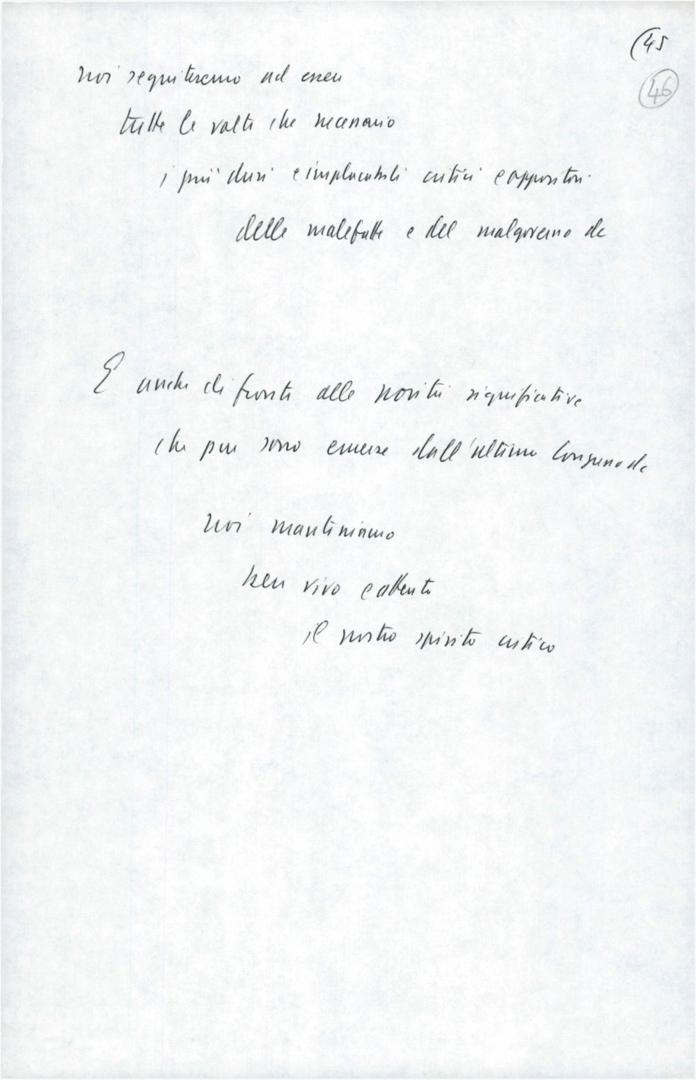 (45
46
noi seguiteremo ad essere
tutte le volte che necessario
i più duri e implacabili critici e oppositori
delle malefatte e del malgoverno dc
E anche di fronte alle novità significative
che pur sono emerse dall'ultimo Congresso dc
noi manteniamo
ben vivo e attento
il nostro spirito critico